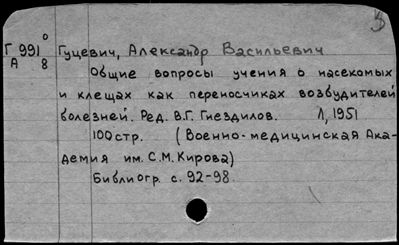 Г 991⁰ Гуцевич, Александр Васильевич
А 8
Общие вопросы учения о насекомых
и клещах как переносчиках возбудителей
болезней. Ред. В.Г. Гнездилов. Л, 1951
100 стр. (Военно-медицинская Ака-
демия им. С.М. Кирова)
Библиогр. с. 92-98.